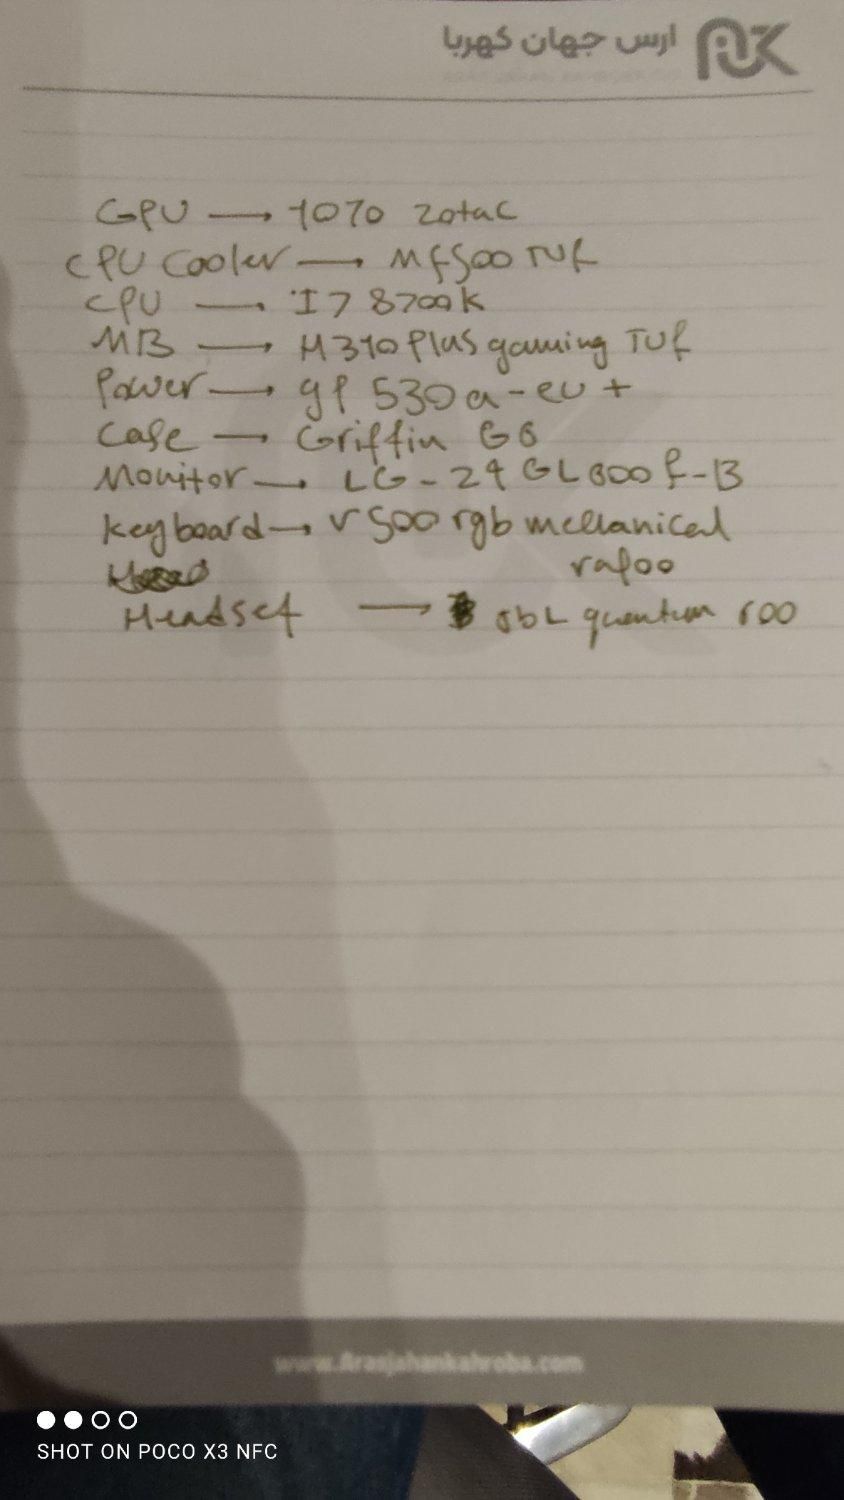 ارس جهان کهربا
GPU → 1070 Zotac
CPU Cooler → Mf500 TUf
CPU → I7 8700k
MB → H310 Plus gaming TUf
Power → gp 530a-eu +
Case → Griffin G6
Monitor → LG-24GL600f-B
Keyboard → V500 rgb mechanical
rapoo
Headset → JbL quantum 600
www.Arasjahankahroba.com
SHOT ON POCO X3 NFC